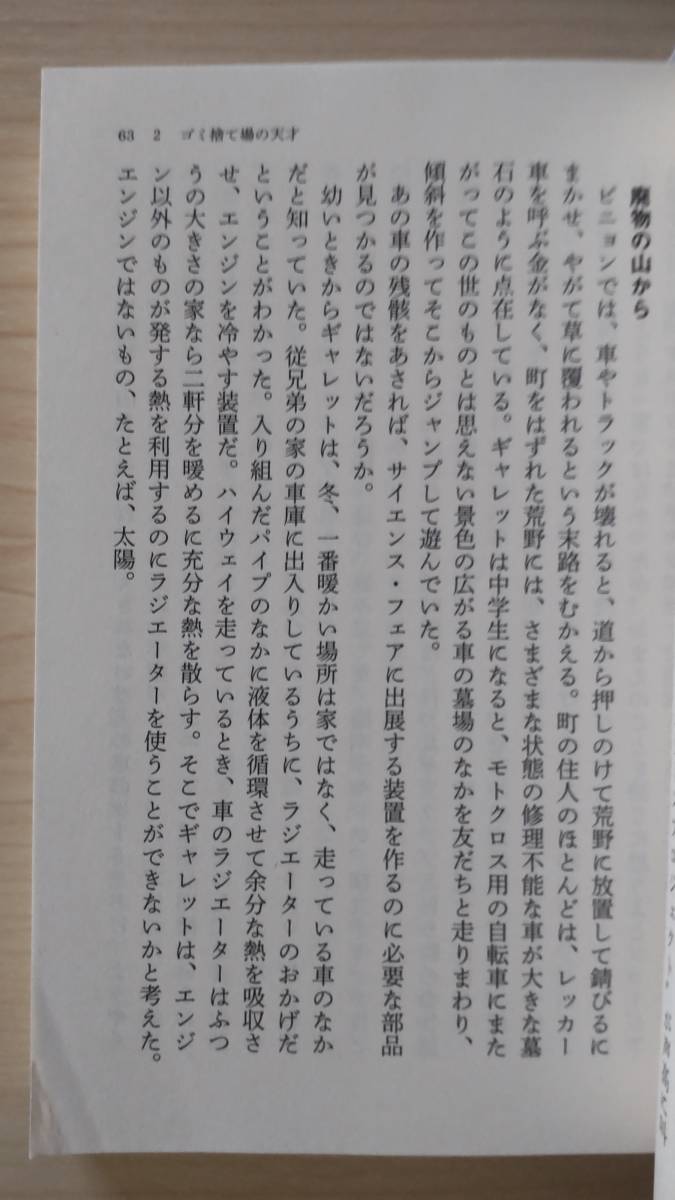 63　2　ゴミ捨て場の天才
廃物の山から
ピニョンでは、車やトラックが壊れると、道から押しのけて荒野に放置して錆びるに
まかせ、やがて草に覆われるという末路をむかえる。町の住人のほとんどは、レッカー
車を呼ぶ金がなく、町をはずれた荒野には、さまざまな状態の修理不能な車が大きな墓
石のように点在している。ギャレットは中学生になると、モトクロス用の自転車にまた
がってこの世のものとは思えない景色の広がる車の墓場のなかを友だちと走りまわり、
傾斜を作ってそこからジャンプして遊んでいた。
あの車の残骸をあされば、サイエンス・フェアに出展する装置を作るのに必要な部品
が見つかるのではないだろうか。
幼いときからギャレットは、冬、一番暖かい場所は家ではなく、走っている車のなか
だと知っていた。従兄弟の家の車庫に出入りしているうちに、ラジエーターのおかげだ
ということがわかった。入り組んだパイプのなかに液体を循環させて余分な熱を吸収さ
せ、エンジンを冷やす装置だ。ハイウェイを走っているとき、車のラジエーターはふつ
うの大きさの家なら二軒分を暖めるに充分な熱を散らす。そこでギャレットは、エンジ
ン以外のものが発する熱を利用するのにラジエーターを使うことができないかと考えた。
エンジンではないもの、たとえば、太陽。